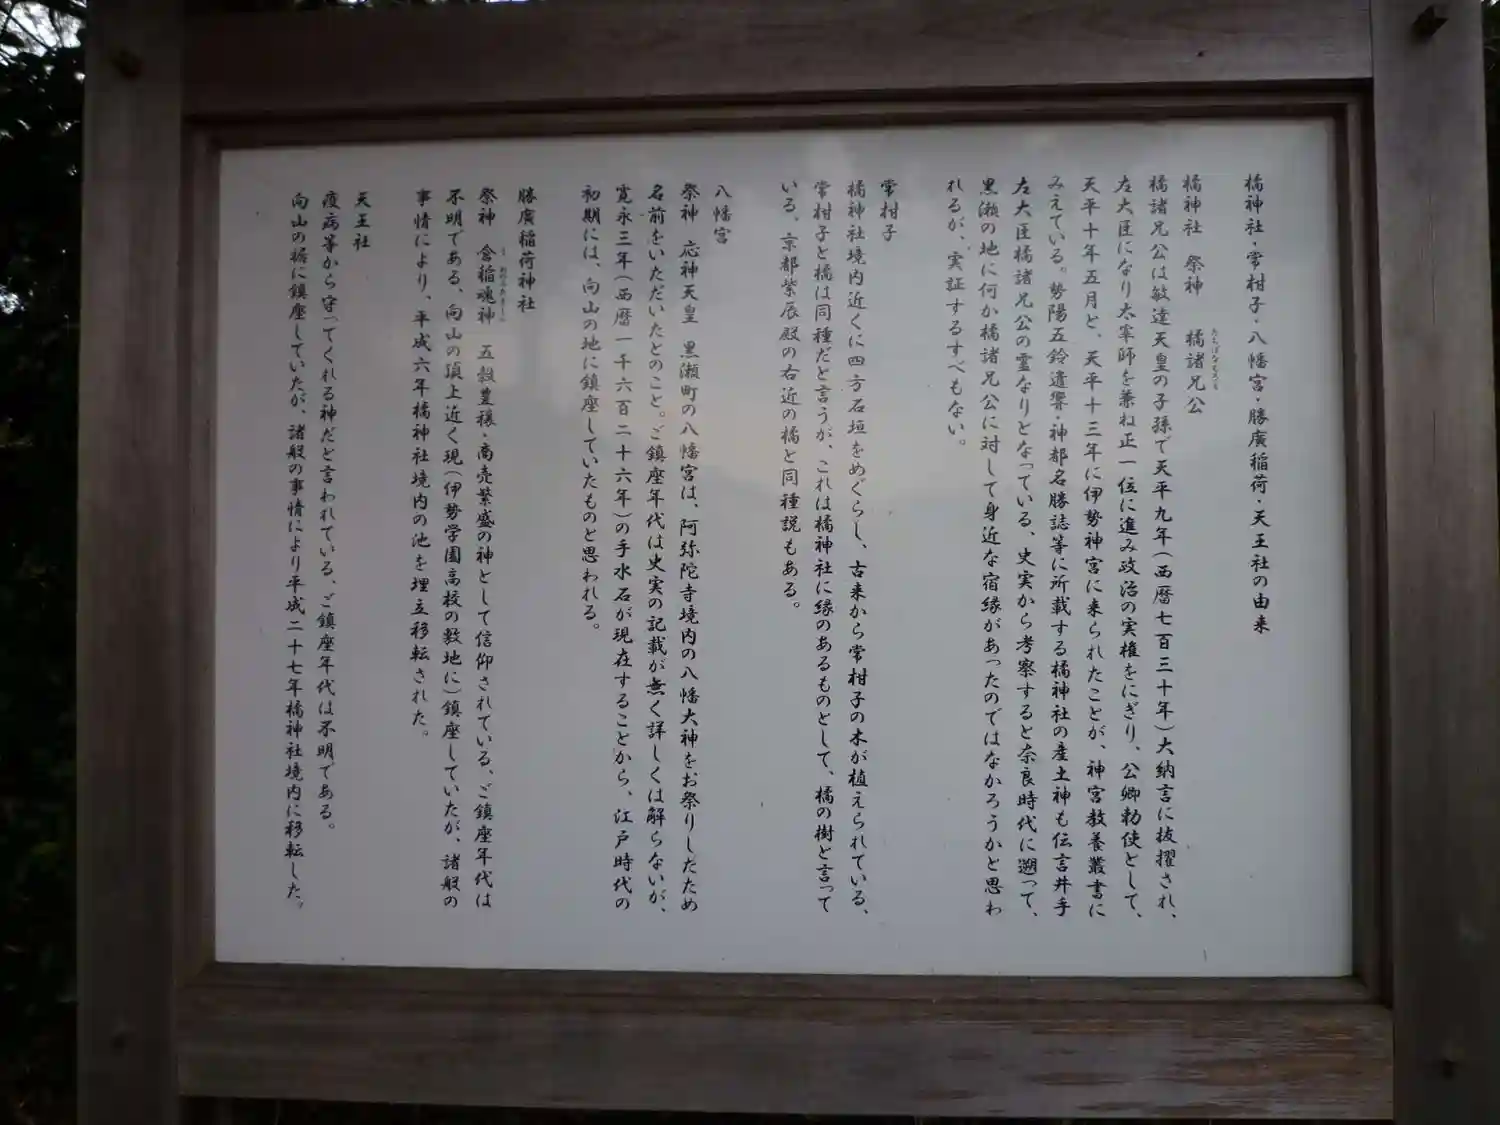 橘神社・常柑子・八幡宮・勝廣稲荷・天王社の由来
橘神社 祭神 橘諸兄公
たちばなもろえ
橘諸兄公は敏達天皇の子孫で天平九年(西暦七百三十年)大納言に抜擢され、
左大臣になり太宰師を兼ね正一位に進み政治の実権をにぎり、公卿勅使として、
天平十年五月と、天平十三年に伊勢神宮に来られたことが、神宮教養叢書に
みえている。勢陽五鈴遺響・神都名勝誌等に所載する橘神社の産土神も伝言井手
左大臣橘諸兄公の霊なりとなっている、史実から考察すると奈良時代に遡って、
黒瀬の地に何か橘諸兄公に対して身近な宿縁があったのではなかろうかと思わ
れるが、実証するすべもない。
常柑子
橘神社境内近くに四方石垣をめぐらし、古来から常柑子の木が植えられている、
常柑子と橘は同種だと言うが、これは橘神社に縁のあるものとして、橘の樹と言って
いる、京都紫辰殿の右近の橘と同種説もある。
八幡宮
祭神 応神天皇 黒瀬町の八幡宮は、阿弥陀寺境内の八幡大神をお祭りしたため
名前をいただいたとのこと。ご鎮座年代は史実の記載が無く詳しくは解らないが、
寛永三年(西暦一千六百二十六年)の手水石が現在することから、江戸時代の
初期には、向山の地に鎮座していたものと思われる。
勝廣稲荷神社
祭神 倉稲魂神 五穀豊穣・商売繁盛の神として信仰されている、ご鎮座年代は
不明である、向山の頂上近く現(伊勢学園高校の敷地に)鎮座していたが、諸般の
事情により、平成六年橘神社境内の池を埋立移転された。
天王社
疫病等から守ってくれる神だと言われている、ご鎮座年代は不明である。
向山の裾に鎮座していたが、諸般の事情により平成二十七年橘神社境内に移転した。